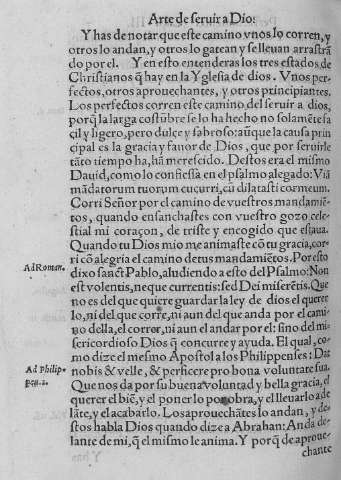 Arte de seruir a Dio:
Y has de notar que este camino vnos lo corren, y
otros lo andan, y otros lo gatean y se lleuan arrastrã
do por el. Y en esto entenderas los tres estados, de
Christianos q̃ hay en la Yglesia de dios. Vnos per-
fectos, otros aprouechantes, y otros principiantes.
Los perfectos corren este camino, del seruir a dios,
porq̃ la larga costũbre se lo ha hecho no solamẽte fa
çil y ligero, pero dulçe y sabroso: aũque la causa prin
çipal es la gracia y fauor de Dios, que por seruirle
tãto tiempo ha, hã meresçido. Destos era el mismo
Dauid, como lo confiessa en el psalmo alegado: Viã
mãdatorum tuorum cucurri, cũ dilatasti cor meum.
Corri Señor por el camino de vuestros mandamiẽ-
tos, quando ensanchastes con vuestro gozo çele-
stial mi coraçon, de triste y encogido que estaua.
Quando tu Dios mio me animaste cõ tu gracia, cor-
ri cõ alegria el camino de tus mandamiẽtos. Por esto
Ad Roman.
dixo sanct Pablo, aludiendo a esto del Psalmo: Non
est volentis, neque currentis: sed Dei miserẽtis. Que
no es del que quiere guardar la ley de dios el querer
lo, ni del que corre, ni aun del que anda por el cami-
no della, el correr, ni aun el andar por el: sino del mi-
sericordioso Dios q̃ concurre y ayuda. El qual, co-
mo dize el mesmo Apostol a los Philippenses: Dat
Ad Philip-
pen. 2.
nobis & velle, & perficere pro bona voluntate sua.
Que nos da por su buena voluntad y bella gracia, el
querer el biẽ, y el poner lo por obra, y el lleuarlo ade
lãte, y el acabarlo. Los aprouechãtes lo andan, y de-
stos habla Dios quando dize a Abrahan: Anda de-
lante de mi, q̃ el mismo le anima. Y porq̃ de aproue-
chante